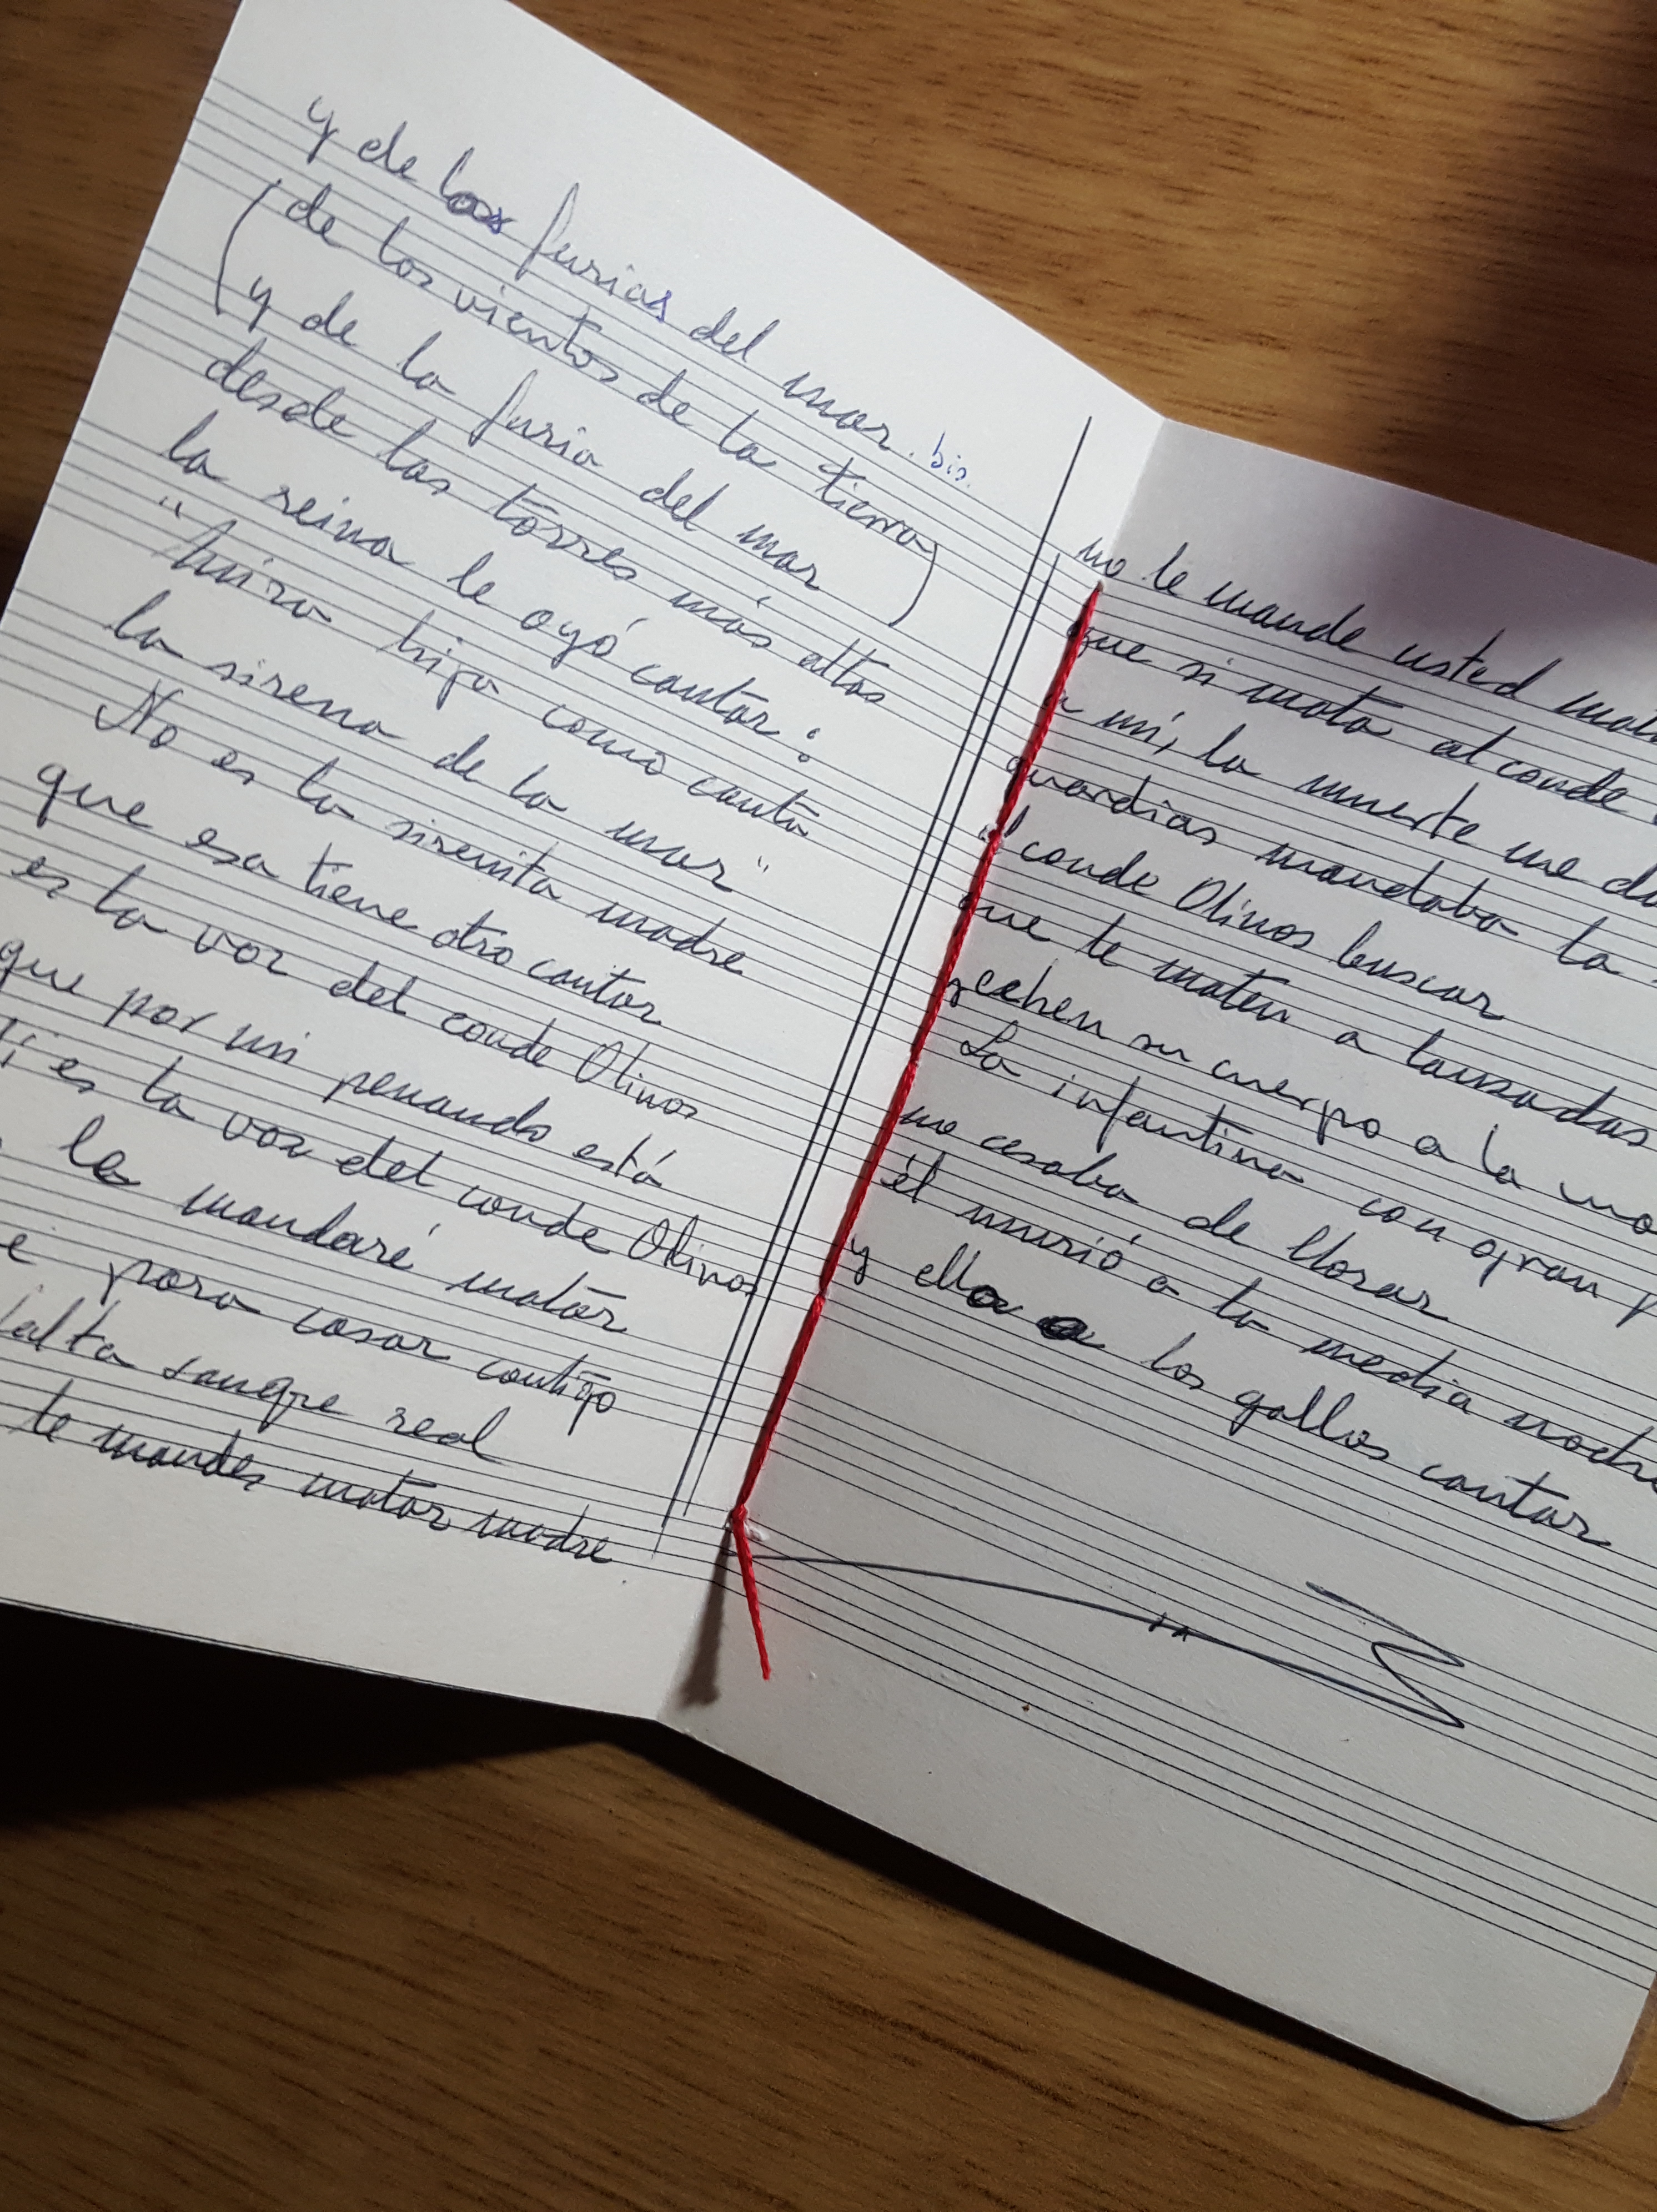 y de las furias del mar. bis.
(de los vientos de la tierra
y de la furia del mar)
desde las torres más altas
la reina le oyó cantar:
"mira hija como canta
la sirena de la mar"
No es la sirenita madre
que esa tiene otro cantar
es la voz del conde Olinos
que por mi penando está
es la voz del conde Olinos
le mandaré matar
para casar contigo
falta sangre real
te mandes matar madre
no le mande usted
que si mata al conde
a mí, la muerte me
guardias mandaba la
al conde Olinos buscar
que le maten a lanzadas
y echen su cuerpo a la
La infantina con gran
no cesaba de llorar
él murió a la media
y ella a los gallos cantar